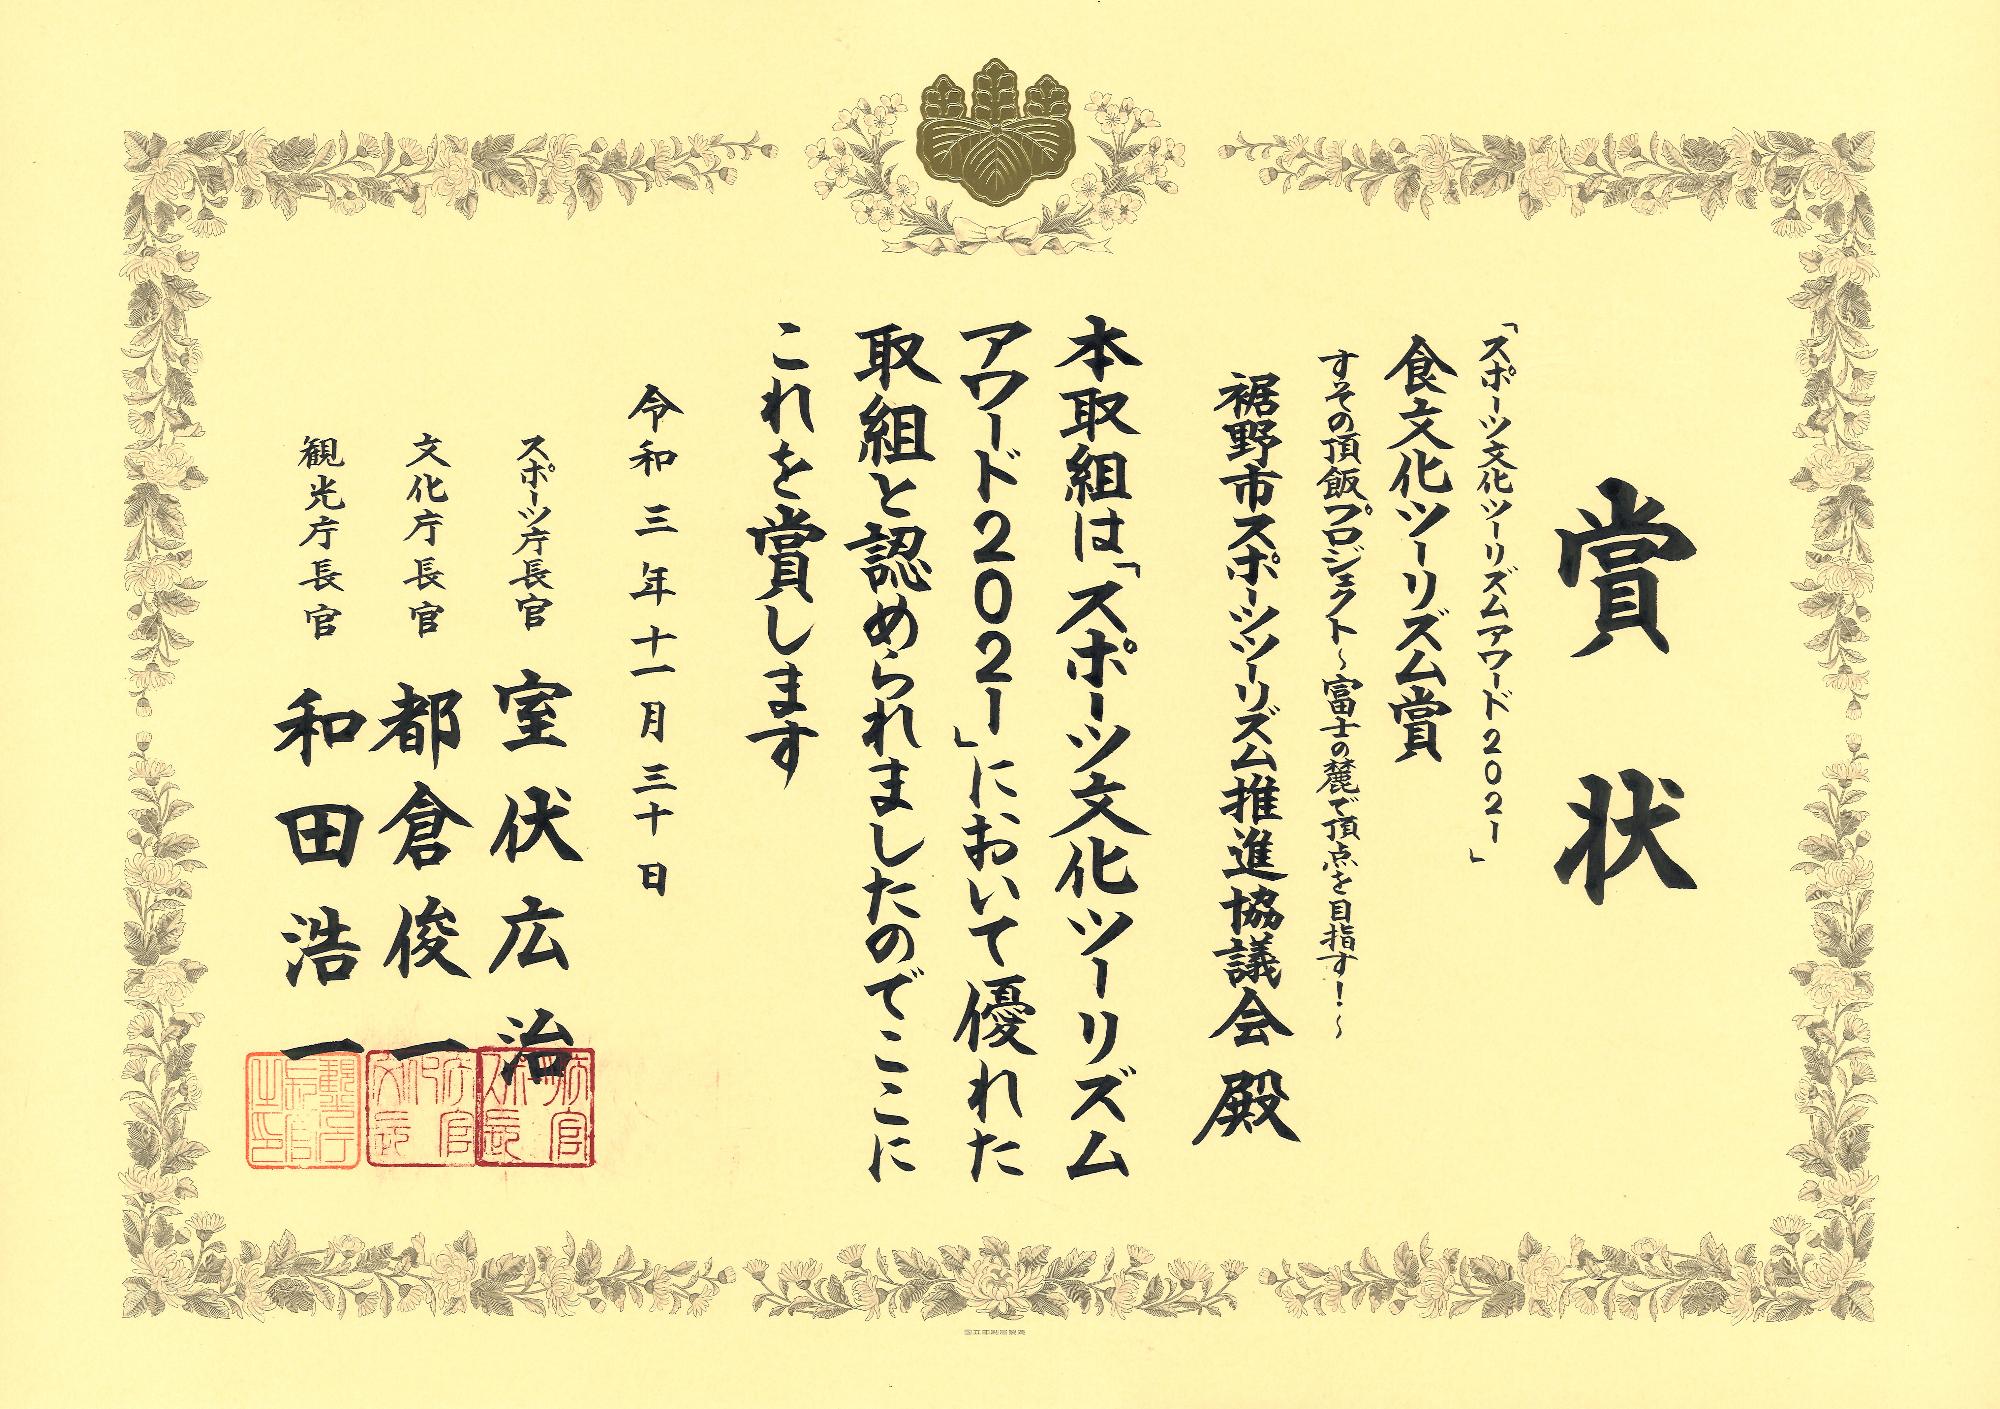 賞状
「スポーツ文化ツーリズムアワード2021」
食文化ツーリズム賞
すその頂飯プロジェクト～富士の麓で頂点を目指す！～
裾野市スポーツツーリズム推進協議会殿
本取組は「スポーツ文化ツーリズム
アワード2021」において優れた
取組と認められましたのでここに
これを賞します
令和三年十一月三十日
スポーツ庁長官 室伏広治
文化庁長官 都倉俊一
観光庁長官 和田浩一